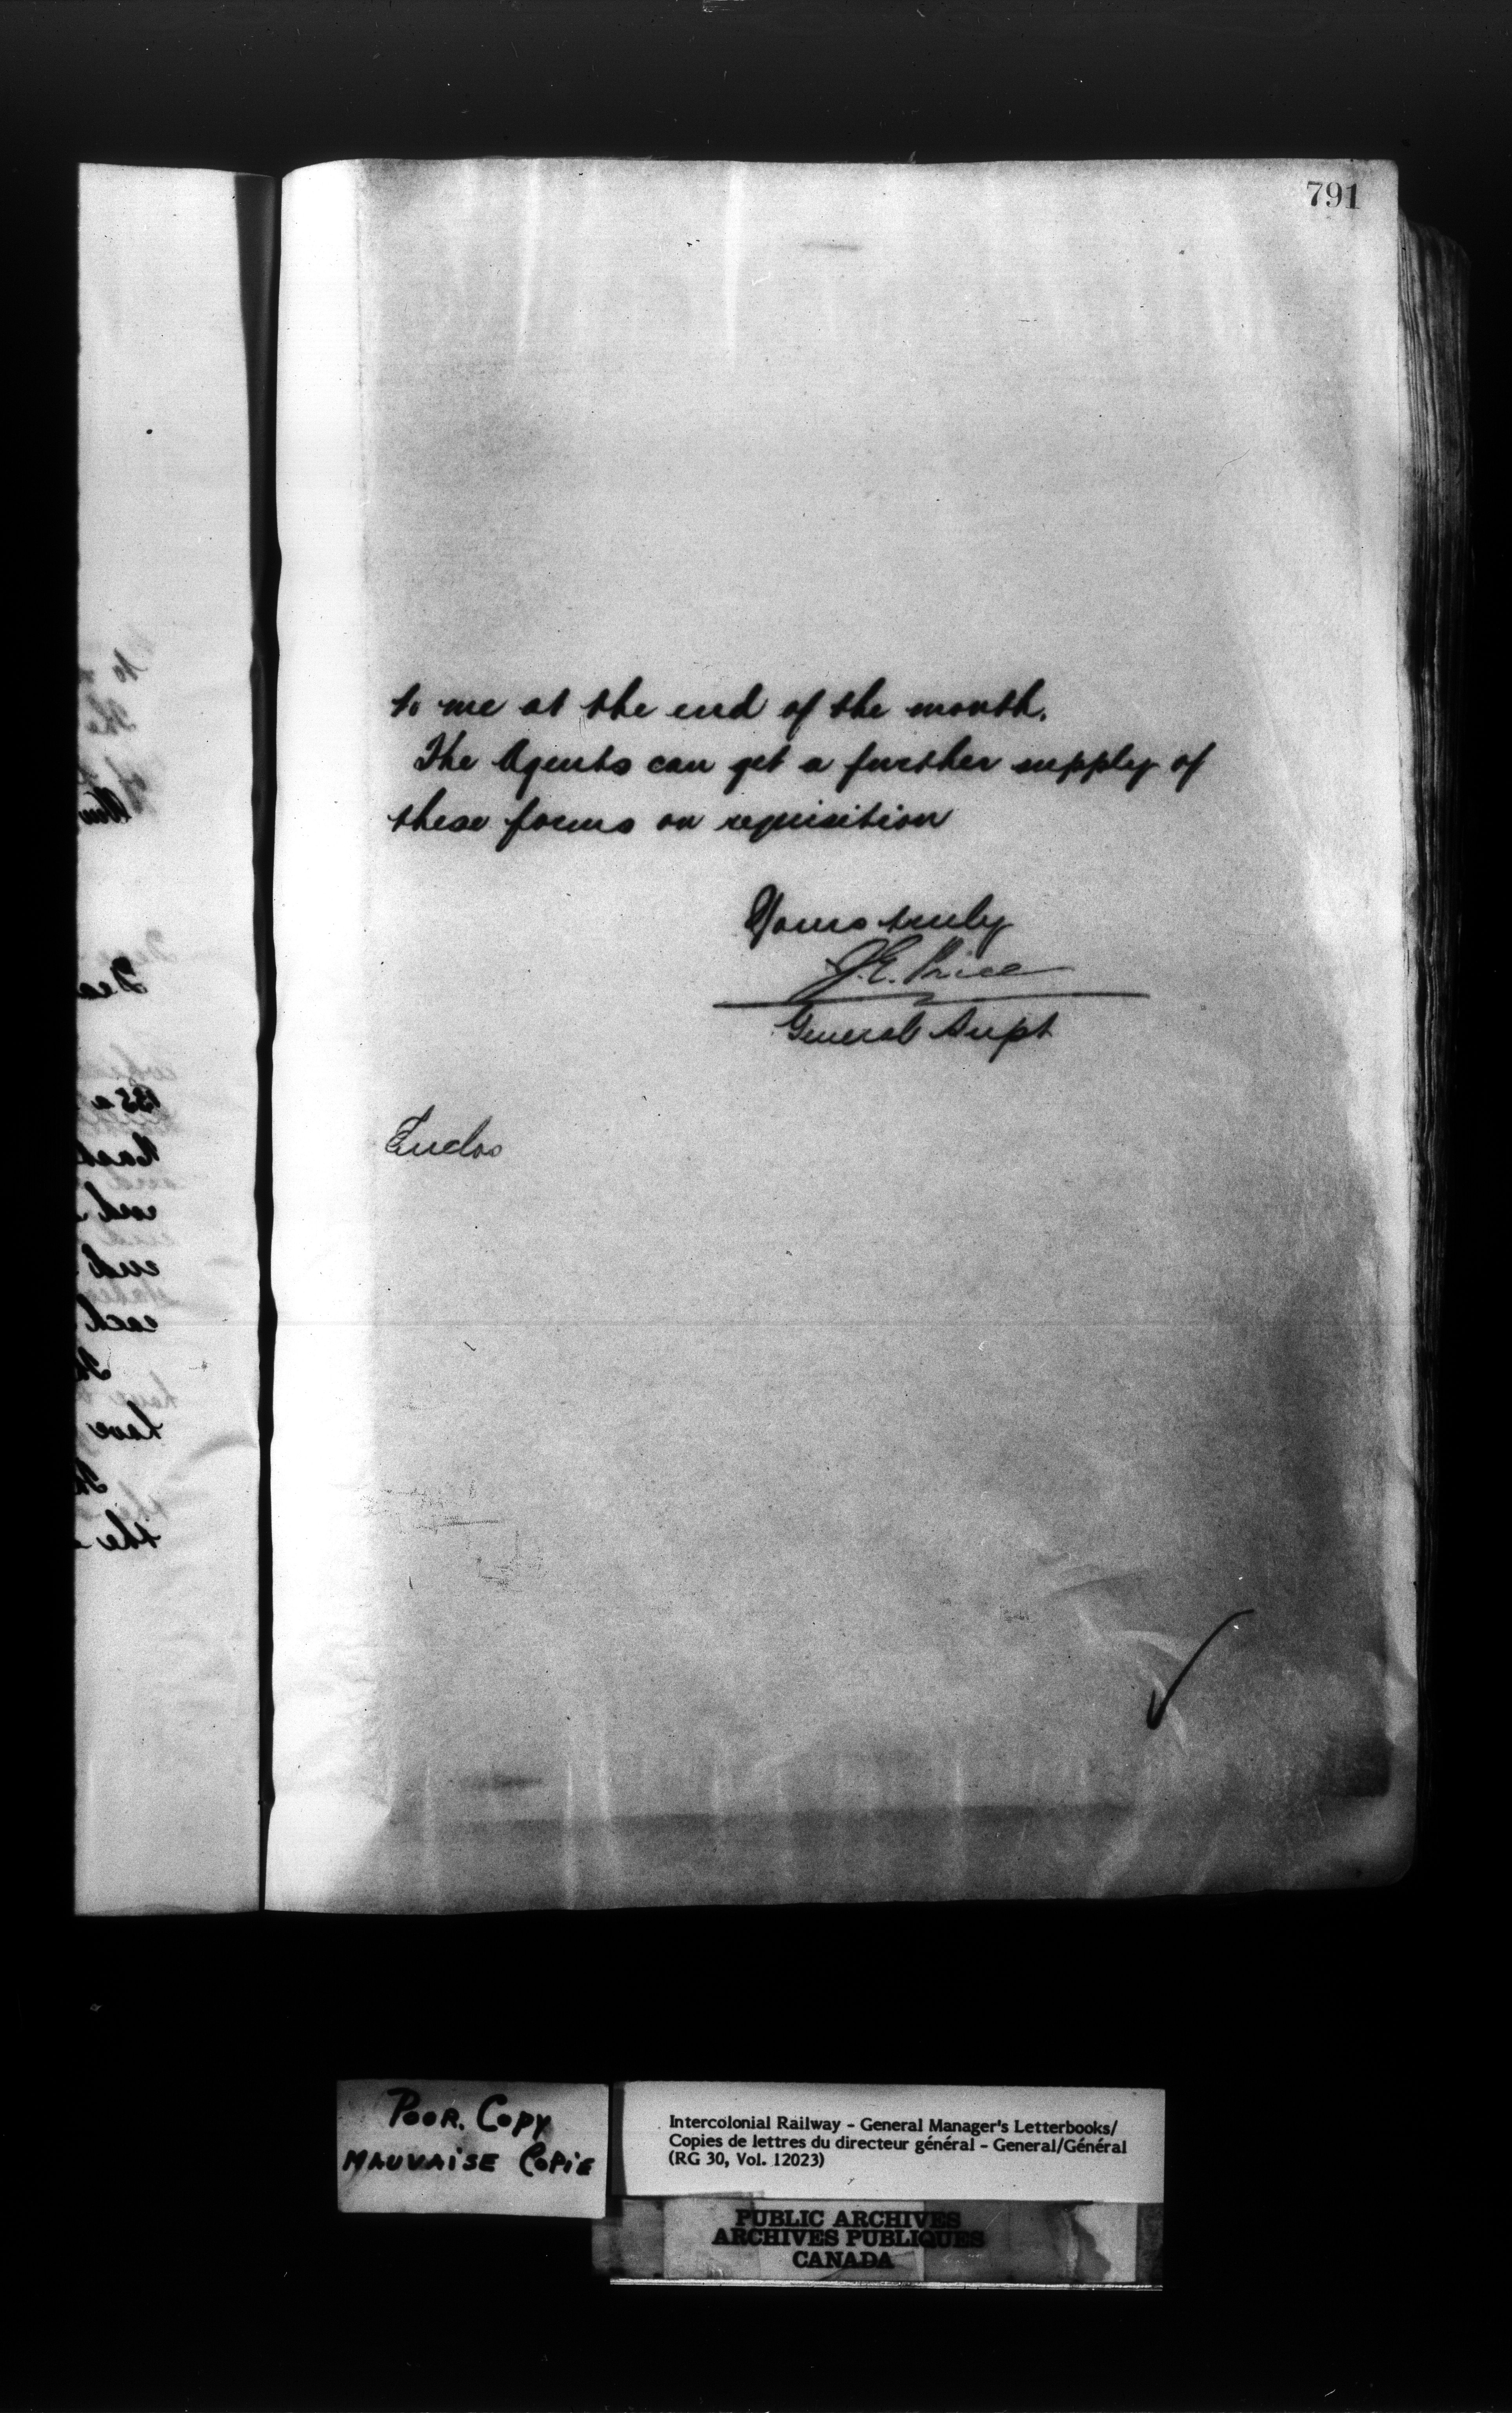 791
to me at the end of the month.
The Agents can get a further supply of
these forms on requisition
Yours truly
J.E. Price
General Supt
Enclos
POOR. COPY
MAUVAISE COPIE
Intercolonial Railway - General Manager's Letterbooks/
Copies de lettres du directeur général - General/Général
(RG 30, Vol. 12023)
PUBLIC ARCHIVES
ARCHIVES PUBLIQUES
CANADA